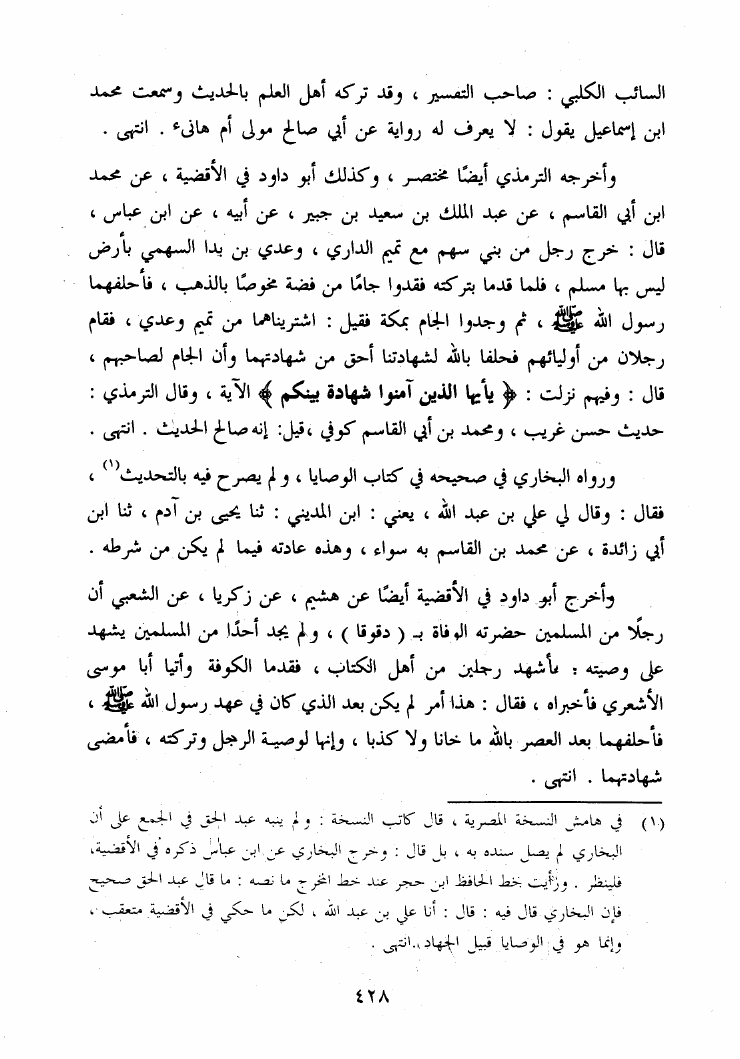 السائب الكلبي : صاحب التفسير ، وقد تركه أهل العلم بالحديث وسمعت محمد
ابن إسماعيل يقول : لا يعرف له رواية عن أبي صالح مولى أم هانىء . انتهى .
وأخرجه الترمذي أيضًا مختصر ، وكذلك أبو داود في الأقضية ، عن محمد
ابن أبي القاسم ، عن عبد الملك بن سعيد بن جبير ، عن أبيه ، عن ابن عباس ،
قال : خرج رجل من بني سهم مع تميم الداري ، وعدي بن بدا السهمي بأرض
ليس بها مسلم ، فلما قدما بتركته فقدوا جامًا من فضة مخوصًا بالذهب ، فأحلفهما
رسول الله ﷺ ، ثم وجدوا الجام بمكة فقيل : اشتريناهما من تميم وعدي ، فقام
رجلان من أوليائهم فحلفا بالله لشهادتنا أحق من شهادتهما وأن الجام لصاحبهم ،
قال : وفيهم نزلت : ﴿ يأيها الذين آمنوا شهادة بينكم ﴾ الآية ، وقال الترمذي :
حديث حسن غريب ، ومحمد بن أبي القاسم كوفي ،قيل: إنه صالح الحديث . انتهى .
ورواه البخاري في صحيحه في كتاب الوصايا ، ولم يصرح فيه بالتحديث(١) ،
فقال : وقال لي علي بن عبد الله ، يعني : ابن المديني : ثنا يحيى بن آدم ، ثنا ابن
أبي زائدة ، عن محمد بن القاسم به سواء ، وهذه عادته فيما لم يكن من شرطه .
وأخرج أبو داود في الأقضية أيضًا عن هشيم ، عن زكريا ، عن الشعبي أن
رجلًا من المسلمين حضرته الوفاة بـ ( دقوقا ) ، ولم يجد أحدًا من المسلمين يشهد
على وصيته ؛ فأشهد رجلين من أهل الكتاب ، فقدما الكوفة وأتيا أبا موسى
الأشعري فأخبراه ، فقال : هذا أمر لم يكن بعد الذي كان في عهد رسول الله ﷺ ،
فأحلفهما بعد العصر بالله ما خانا ولا كذبا ، وإنها لوصية الرجل وتركته ، فأمضى
شهادتهما . انتهى .
(١) في هامش النسخة المصرية ، قال كاتب النسخة : ولم ينبه عبد الحق في الجمع على أن
البخاري لم يصل سنده به ، بل قال : وخرج البخاري عن ابن عباس ذكره في الأقضية،
فلينظر . ورأيت خط الحافظ ابن حجر عند خط المخرج ما نصه : ما قال عبد الحق صحيح
فإن البخاري قال فيه : قال : أنا علي بن عبد الله ، لكن ما حكي في الأقضية متعقب ،
وإنما هو في الوصايا قبيل الجهاد..انتهى .
٤٢٨